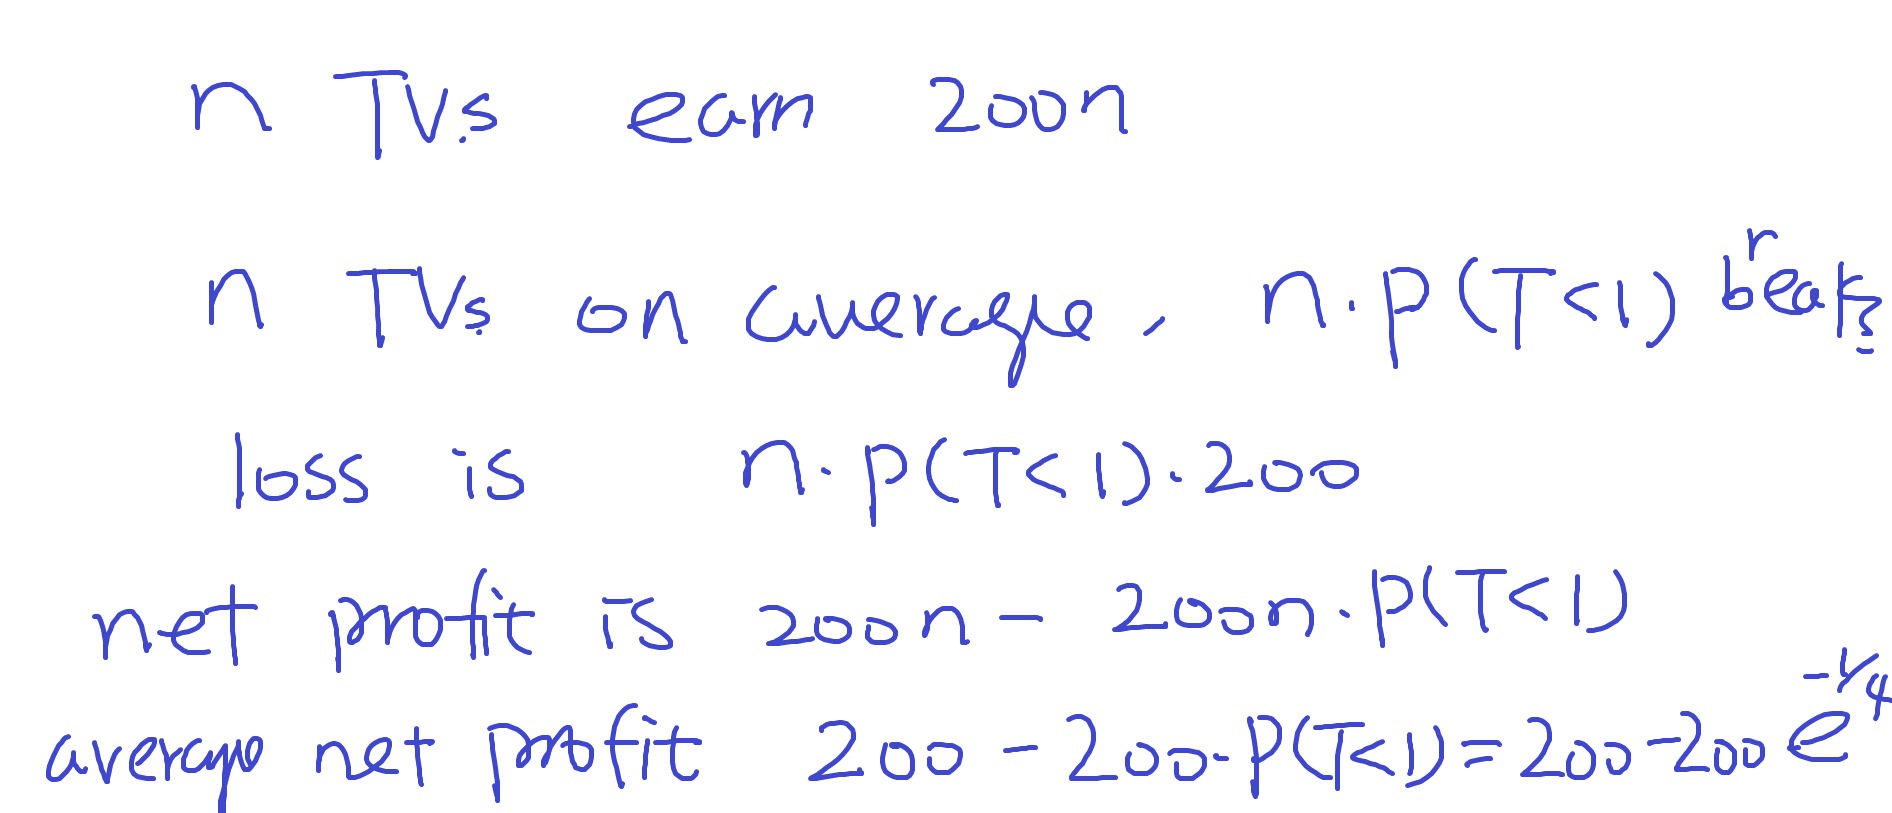 n TVs earn 200n
n TVs on average, n·P(T<1) breaks
loss is n·P(T<1)·200
net profit is 200n - 200n·P(T<1)
average net profit 200 - 200·P(T<1) = 200-200 e^{-1/4}